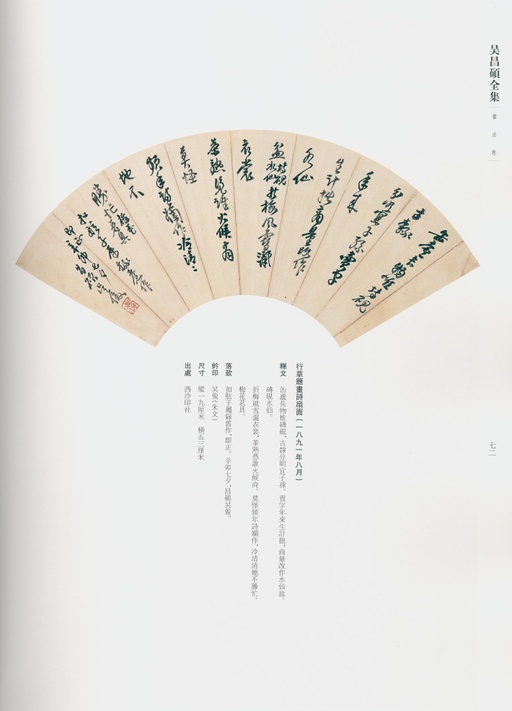 吴昌碩全集
書法卷
七二
行草題畫詩扇面（一八九一年八月）
釋文 缶廬長物惟磚硯，古隸分明宜子孫。賣字年來生計拙，商量改作水仙盆。
磚硯水仙。
折梅風雪灑衣裳，茶熟憑誰火候商。莫怪頻年詩蹋作，冷清清地不勝忙。
梅花茗具。
落款
辛卯七夕，昌碩吴俊。
鈐印 吴俊（朱文）
尺寸 縱一九厘米 横五三厘米
出處 西泠印社